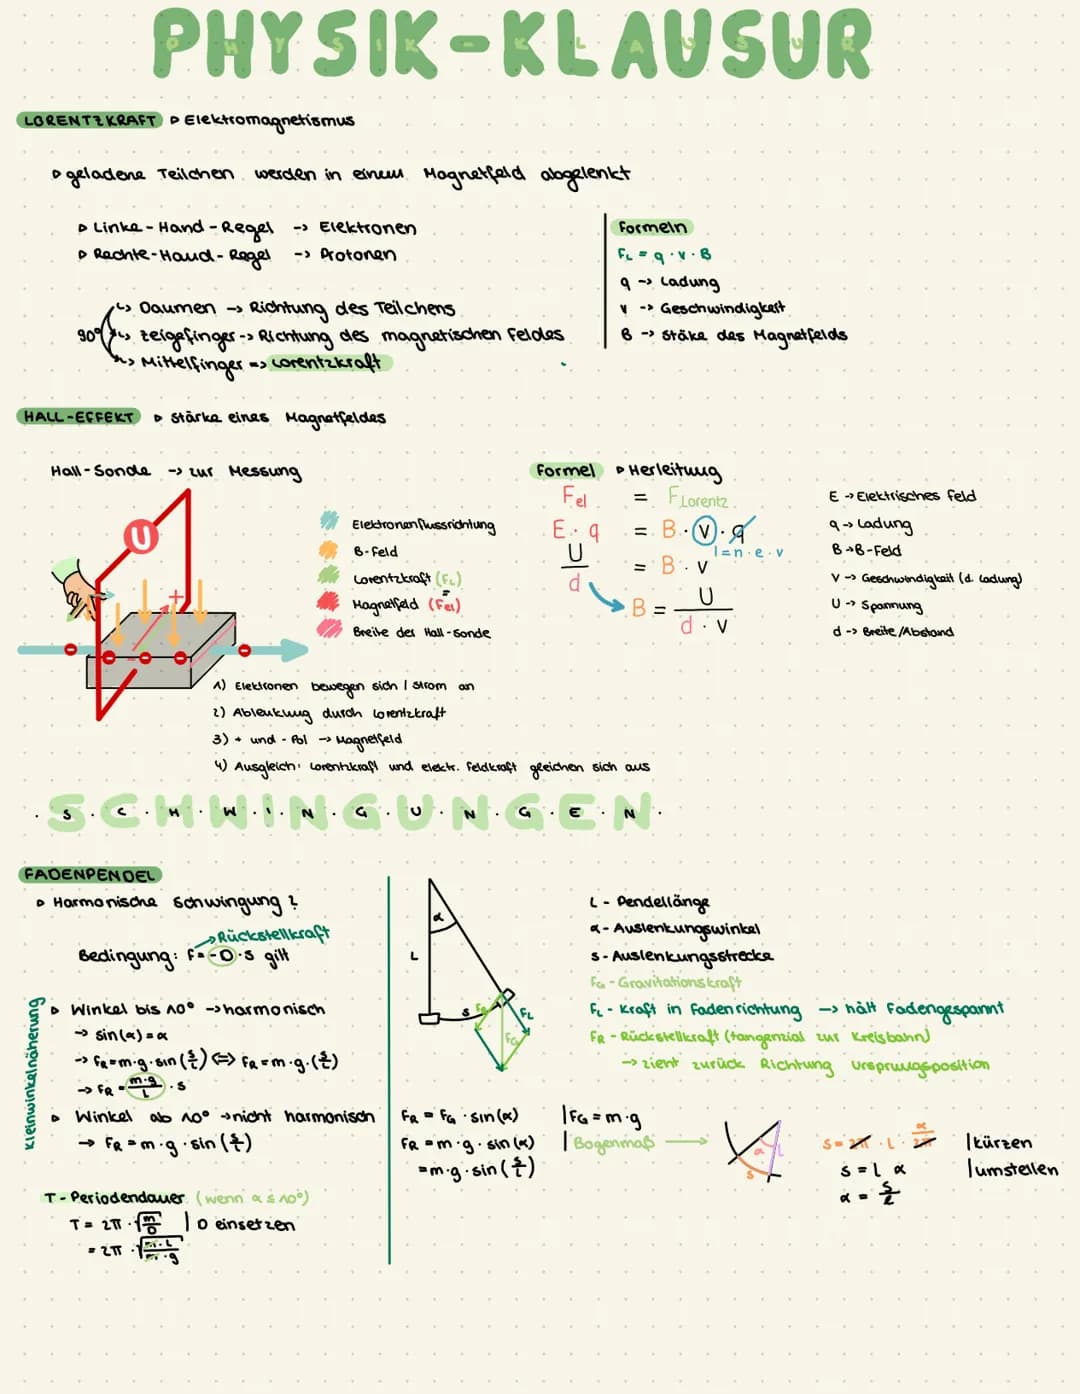 PHYSIK-KLAUSUR
LORENTZKRAFT ▹ Elektromagnetismus
▹ geladene Teilchen werden in einem Magnetfeld abgelenkt
▹ Linke-Hand-Regel -> Elektronen
▹ Rechte-Hand-Regel -> Protonen
90° ↳ Daumen -> Richtung des Teilchens
↳ Zeigefinger -> Richtung des magnetischen Feldes
↳ Mittelfinger => Lorentzkraft
Formeln
FL = q · v · B
q -> Ladung
v -> Geschwindigkeit
B -> Stäke des Magnetfelds
HALL-EFFEKT ▹ Stärke eines Magnetfeldes
Hall-Sonde -> zur Messung
U
+
Elektronenflussrichtung
B-Feld
Lorentzkraft (FL)
Magnetfeld (Fel)
Breite der Hall-Sonde
Formel ▹ Herleitung
Fel = FLorentz
E · q = B · v · q
I = n · e · v
U/d = B · v
B = U/(d · v)
E -> Elektrisches Feld
q -> Ladung
B -> B-Feld
V -> Geschwindigkeit (d. Ladung)
U -> Spannung
d -> Breite/Abstand
1) Elektronen bewegen sich / Strom an
2) Ablenkung durch Lorentzkraft
3) + und - Pol -> Magnetfeld
4) Ausgleich: Lorentzkraft und elektr. Feldkraft gleichen sich aus
· S · C · H · W · I · N · G · U · N · G · E · N ·
FADENPENDEL
▹ Harmonische Schwingung?
-> Rückstellkraft
Bedingung: F = -D · s gilt
Kleinwinkelnäherung
▹ Winkel bis 10° -> harmonisch
-> sin(α) = α
-> FR = m·g·sin(s/L) <=> FR = m·g·(s/L)
-> FR = m·g/L · s
▹ Winkel ab 10° -> nicht harmonisch
-> FR = m·g·sin(s/L)
T - Periodendauer (wenn α ≤ 10°)
T = 2π · √(m/D) | D einsetzen
= 2π · √(m·L/m·g)
α
L
s
FR
FL
FG
L - Pendellänge
α - Auslenkungswinkel
s - Auslenkungsstrecke
FG - Gravitationskraft
FL - Kraft in Fadenrichtung -> hält Fadengespannt
FR - Rückstellkraft (tangenzial zur Kreisbahn)
-> zieht zurück Richtung Ursprungsposition
FR = FG · sin(α) | FG = m·g
FR = m·g·sin(α) | Bogenmaß ->
= m·g·sin(s/L)
α
L
s
s = 2π · L · α/2π | kürzen
s = L α | umstellen
α = s/L